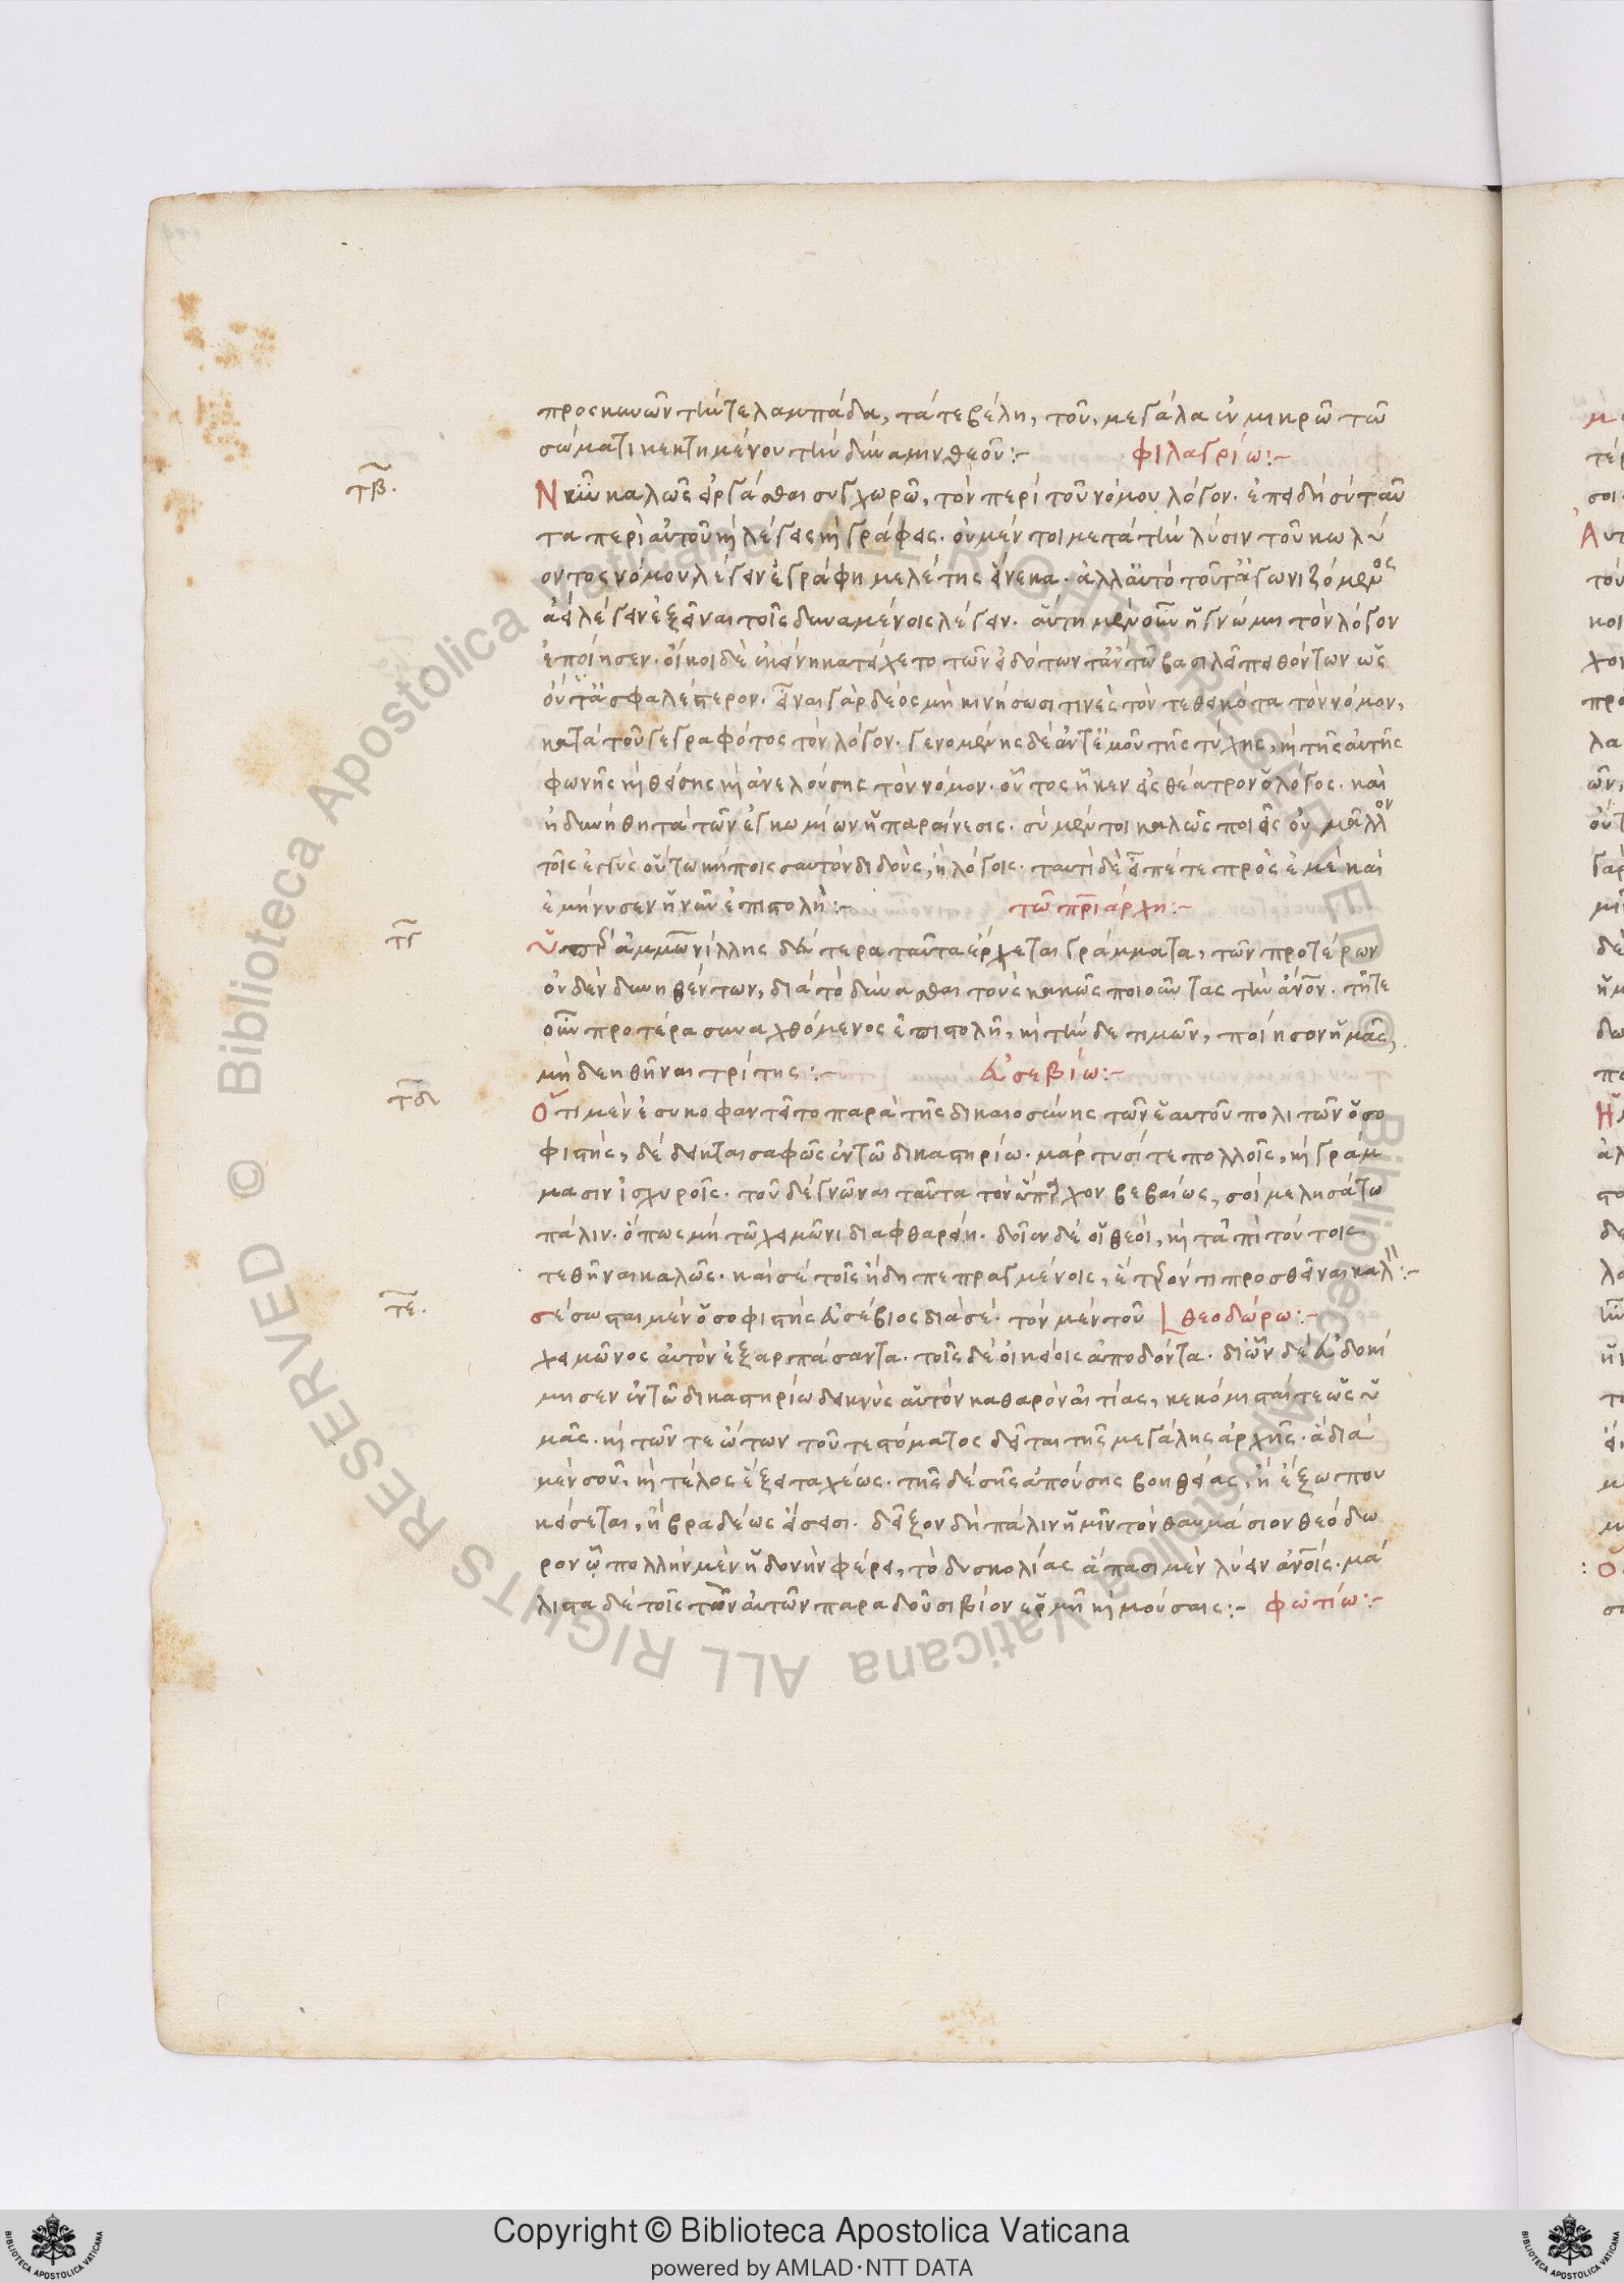 προσκυνῶν τήν τε λαμπάδα, τά τε βέλη, τοῦ, μεγάλα ἐν μικρῶ τῶ
σώματι κεκτημένου τὴν δύναμιν θεοῦ:- φιλαγρίω:-
τβ.
Νικᾶν καλῶς ἐργάσασθαι συγχωρῶ, τὸν περὶ τοῦ νόμου λόγον. ἐπειδὴ σὺ ταῦ
τα περὶ αὐτοῦ καὶ λέγεις καὶ γράφεις. οὐ μέντοι μετὰ τὴν λύσιν τοῦ κωλύ
οντος νόμου λέγειν ἐγράφη μελέτης εἵνεκα. ἀλλ' αὐτὸ τοῦτ' ἀγωνιζόμενος
ἀεὶ λέγειν ἐξεῖναι τοῖς δυναμένοις λέγειν. αὕτη μὲν οὖν ἡ γνώμη τὸν λόγον
ἐποίησεν. οἴκοι δὲ ἐκεῖνη κατείχετο τῶν εἰδότων ταῦτ τῶ βασιλεῖ πειθόντων ὡς
οὕτ' ἀσφαλέστερον. εἶναι γὰρ δέος μὴ κινήσωσι τινὲς τὸν τεθεικότα τὸν νόμον,
κατὰ τοῦ γεγραφότος τὸν λόγον. γενομένης δὲ ἀντ' ἐμοῦ τῆς τύχης, καὶ τῆς αὐτῆς
φωνῆς καὶ θείσης καὶ ἀνελούσης τὸν νόμον. οὗτος ἧκεν εἰς θέατρον ὁ λόγος. καὶ
ἠδυνήθη τὰ τῶν ἐγκωμίων ἡ παραίνεσις. σὺ μέντοι καλῶς ποιεῖς οὐ μᾶλλον
τοῖς ἐγγὺς οὕτω κήποις σαυτὸν διδοὺς, ἢ λόγοις. ταυτὶ δὲ εἶπέ τε πρὸς ἐμὲ καὶ
ἐμήνυσεν ἡ νῦν ἐπιστολή:- τῶ πριάρχη:-
τγ
Ὑπὲρ ἀμμωνίλλης δεύτερα ταῦτα ἔρχεται γράμματα, τῶν προτέρων
οὐδὲν δυνηθέντων, διὰ τὸ δύνασθαι τοὺς κακῶς ποιοῦντας τὴν ἄνον. τῆ τε
οὖν προτέρα συναχθόμενος ἐπιστολῆ, καὶ τήνδε τιμῶν, ποίησον ἡμᾶς,
μὴ δεηθῆναι τρίτης:- εὐσεβίω:-
τδ
Ὅτι μὲν ἐσυκοφαντεῖτο παρὰ τῆς δικαιοσύνης τῶν ἑαυτοῦ πολιτῶν ὁ σο
φιστής, δέδεικται σαφῶς ἐν τῶ δικαστηρίω. μάρτυσί τε πολλοῖς, καὶ γράμ
μασιν ἰσχυροῖς. τοῦ δὲ γνῶναι ταῦτα τὸν ὕπαρχον βεβαίως, σοὶ μελησάτω
πάλιν. ὅπως μὴ τῶ χειμῶνι διαφθαρείη. δοῖεν δὲ οἱ θεοὶ, καὶ τἀπὶ τούτοις
τεθῆναι καλῶς. καὶ σὲ τοῖς ἤδη πεπραγμένοις, ἕτερόν τι προσθεῖναι καλ:-
τε.
σέσωσται μὲν ὁ σοφιστὴς εὐσέβιος διὰ σέ. τὸν μὲν τοῦ θεοδώρω:-
χειμῶνος αὐτὸν ἐξαρπάσαντα. τοῖς δὲ οἰκείοις ἀποδόντα. δι' ὧν δὲ εὐδοκί
μησεν ἐν τῶ δικαστηρίω δεικνὺς αὑτὸν καθαρὸν αἰτίας, κεκόμισταί τε ὡς ὑ
μᾶς. καὶ τῶν τε ὤτων τοῦ τε στόματος δεῖται τῆς μεγάλης ἀρχῆς. ἃ διὰ
μὲν σοῦ, καὶ τέλος ἕξει ταχέως. τῆς δὲ σῆς ἀπούσης βοηθείας, ἢ ἔξω που
κείσεται, ἢ βραδέως εἴσεισι. δεῖξον δὴ πάλιν ἡμῖν τὸν θαυμάσιον θεόδω
ρον ὧ πολλὴν μὲν ἡδονὴν φέρει, τὸ δυσκολίας ἅπασι μὲν λύειν ἀνοῖς. μά
λιστα δὲ τοῖς τὸν αὑτῶν παραδοῦσι βίον ἑρμῆ καὶ μούσαις:- φωτίω:-
Copyright © Biblioteca Apostolica Vaticana
powered by AMLAD · NTT DATA